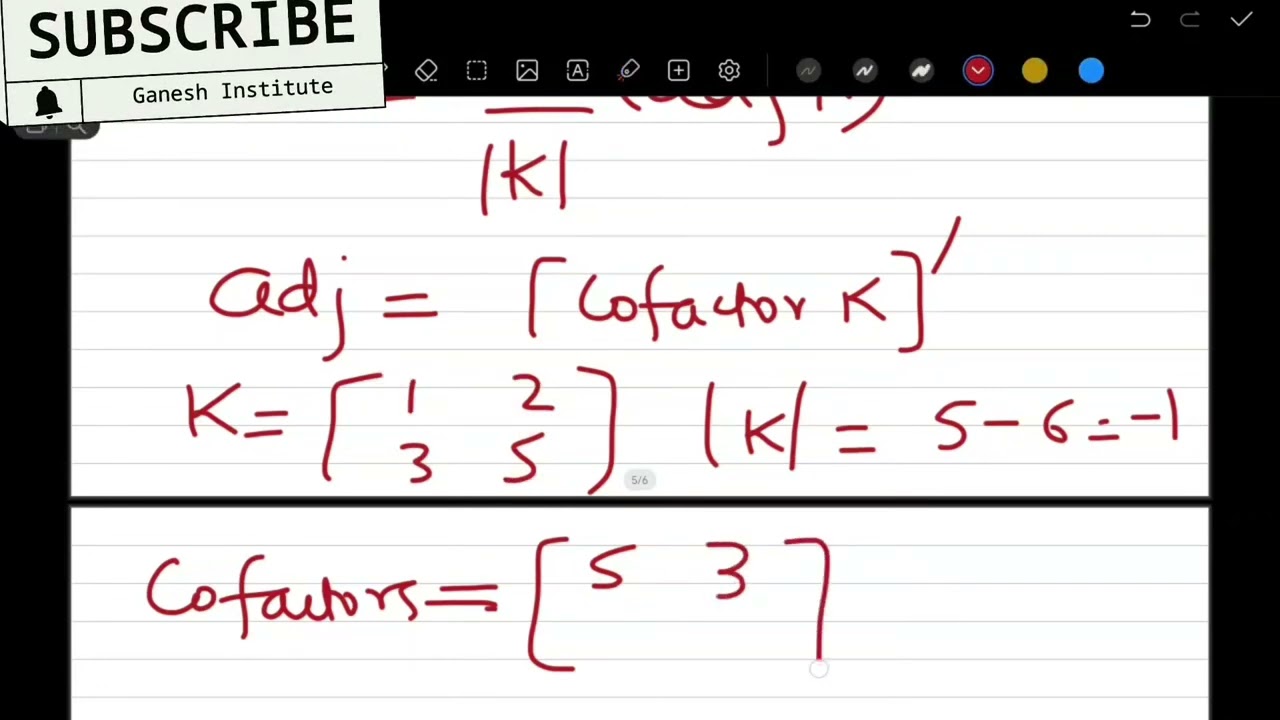 SUBSCRIBE
Ganesh Institute
|K|
adj = [Cofactor K]′
K = [1 2
3 5] |K| = 5 - 6 = -1
5/6
Cofactors = [5 3]